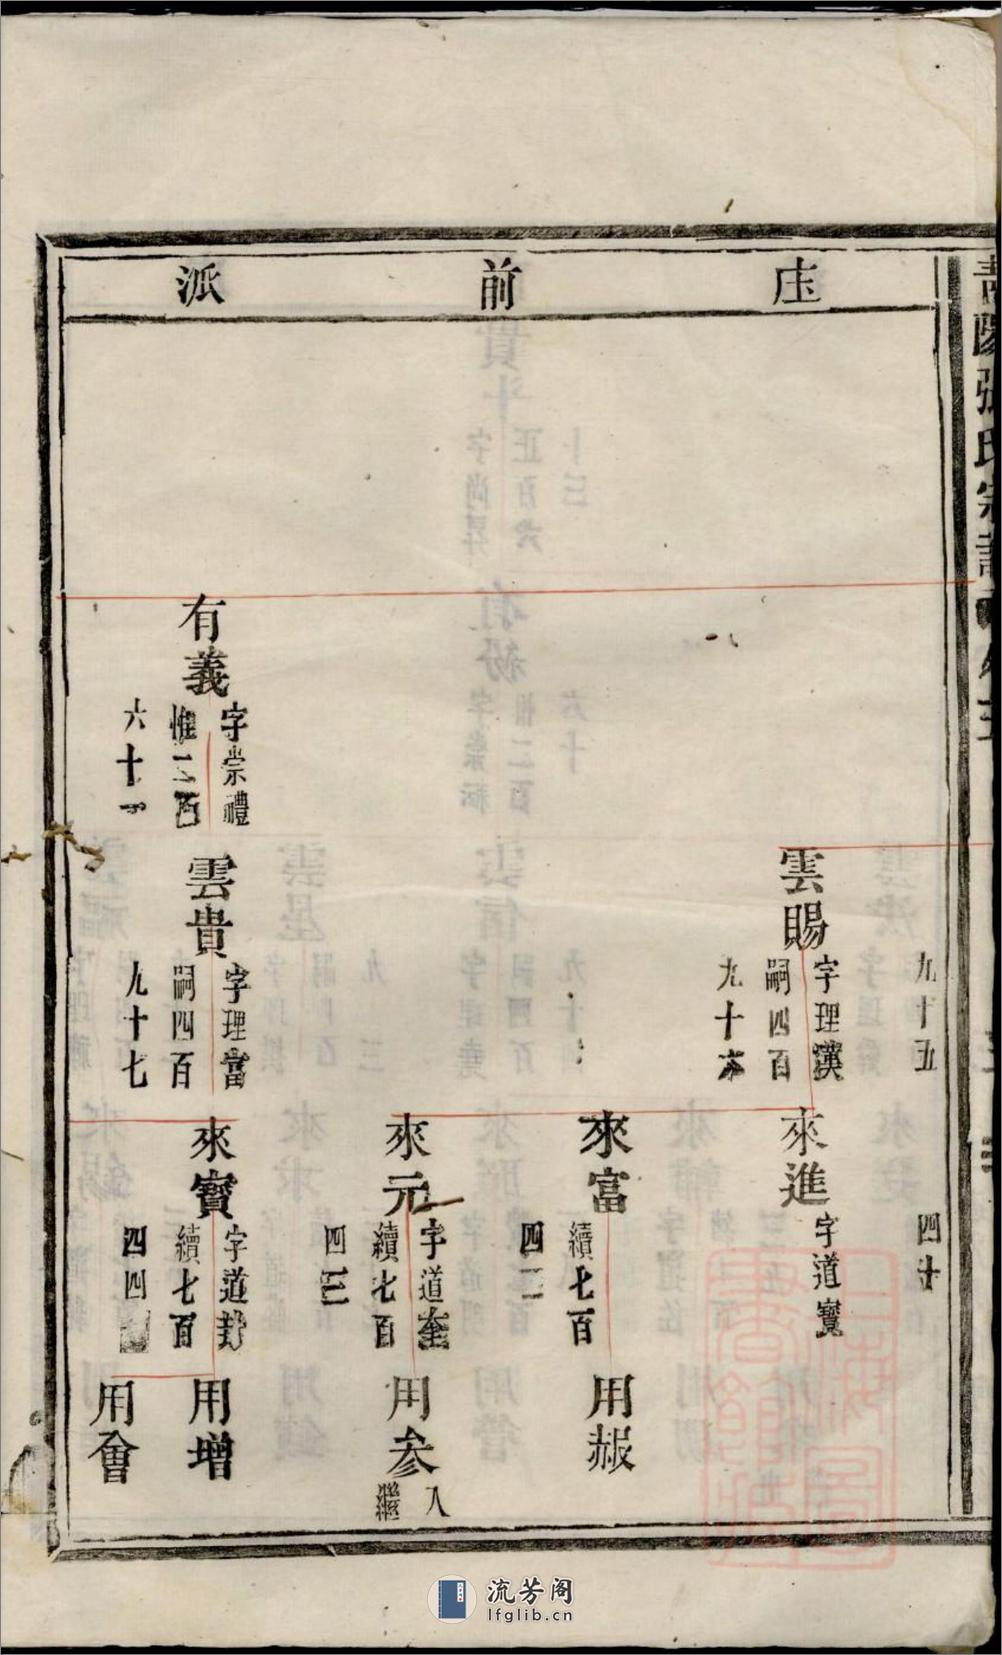 庄前派
九十五
四十
雲賜
字理漢
嗣四百
九十六
來進
字道寶
來富
續七百
四二
用赧
來元
字道奎
續七百
四三
用參
入
繼
有義
字崇禮
惟二百
六十一
雲貴
字理富
嗣四百
九十七
來寶
字道
續七百
四四
用增
用會
流芳阁
lfglib.cn